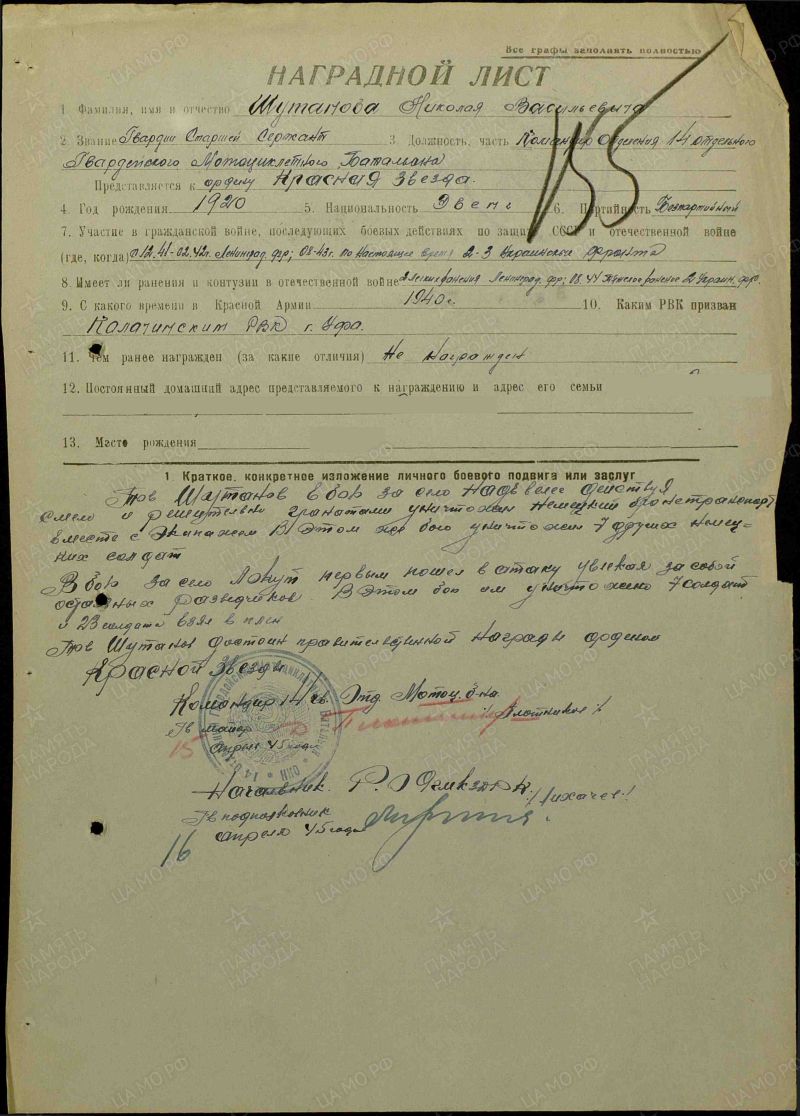 Все графы заполнять полностью
НАГРАДНОЙ ЛИСТ
1. Фамилия, имя и отчество Шутанова Николая Васильевича
2. Звание Гвардии Старшей Сержант 3. Должность, часть Командир отделения 14 отдельного
Гвардейского Мотоциклетного Баталиана
Представляется к ордену Красная Звезда.
155
4. Год рождения 1920 5. Национальность Эвенг 6. Партийность Безпартийный
7. Участие в гражданской войне, последующих боевых действиях по защите СССР и отечественной войне
(где, когда) с 12.41-02.42г. Ленинград. фр; 08-43г. по настоящее время 2-3 Украинский фронта
8. Имеет ли ранения и контузии в отечественной войне 2 легких ранения Ленинград. фр; 08.44 ранение 2 Украин. фр.
9. С какого времени в Красной Армии 1940г. 10. Каким РВК призван
РВК г. Уфа.
11. Чем ранее награжден (за какие отличия) Не награжден
12. Постоянный домашний адрес представляемого к награждению и адрес его семьи
13. Место рождения
1 Краткое, конкретное изложение личного боевого подвига или заслуг
Тов Шутанов в бою за село действуя
смело и решительно гранатами уничтожил немецкий бронетранспорт
вместе с экипажем В этом же бою уничтожил 7 других немец-
ких солдат
В бою за село первым пошел в атаку увлекая за собой
остальных разведчиков В этом бою им уничтожено 7 солдат
и 23 солдата взял в плен
Тов Шутанов достоин правительственной награды орденом
Красной Звезды
Командир 14 гв. Отд. Мотоц. б-на
гв майор /Плотников/
15 апрель 45 года
Начальник
Гв подполковник /Лихачев/
16 апреля 45 года
ЦАМО РФ
ПАМЯТЬ НАРОДА